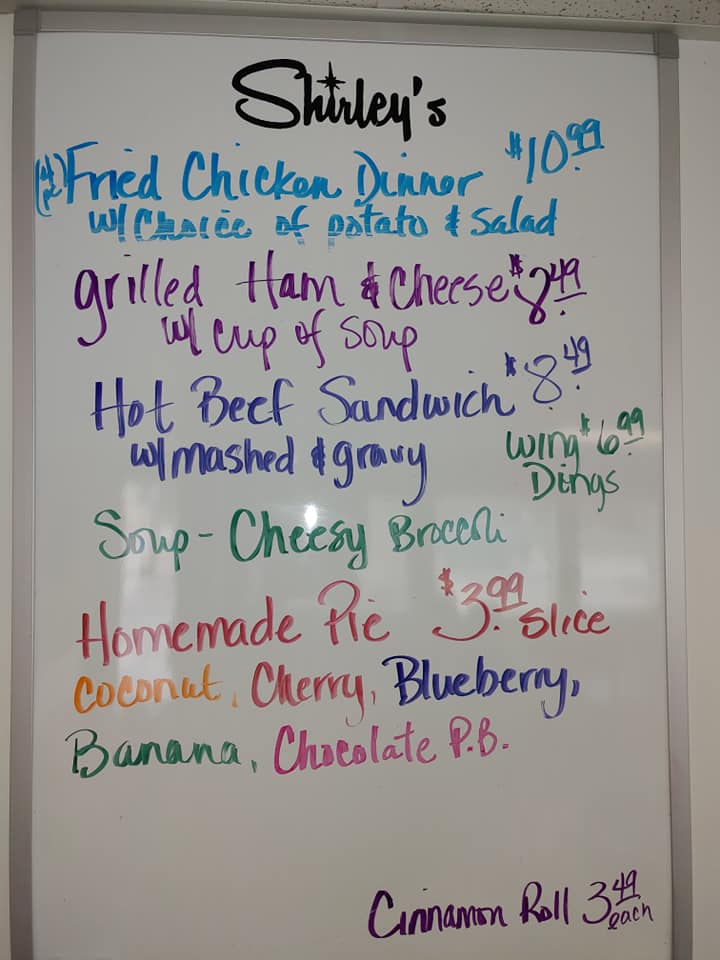 Shirley's
Fried Chicken Dinner $10.99
w/ Choice of potato & Salad
grilled Ham & Cheese $8.49
w/ cup of soup
Hot Beef Sandwich $8.49
w/ mashed & gravy
Wing $6.99
Dings
Soup - Cheesy Broccoli
Homemade Pie $3.99 slice
Coconut, Cherry, Blueberry,
Banana, Chocolate P.B.
Cinnamon Roll 3.49
each